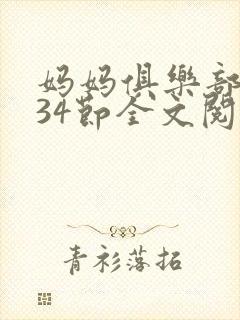 妈妈俱樂部
34節全文閱
青衫落拓